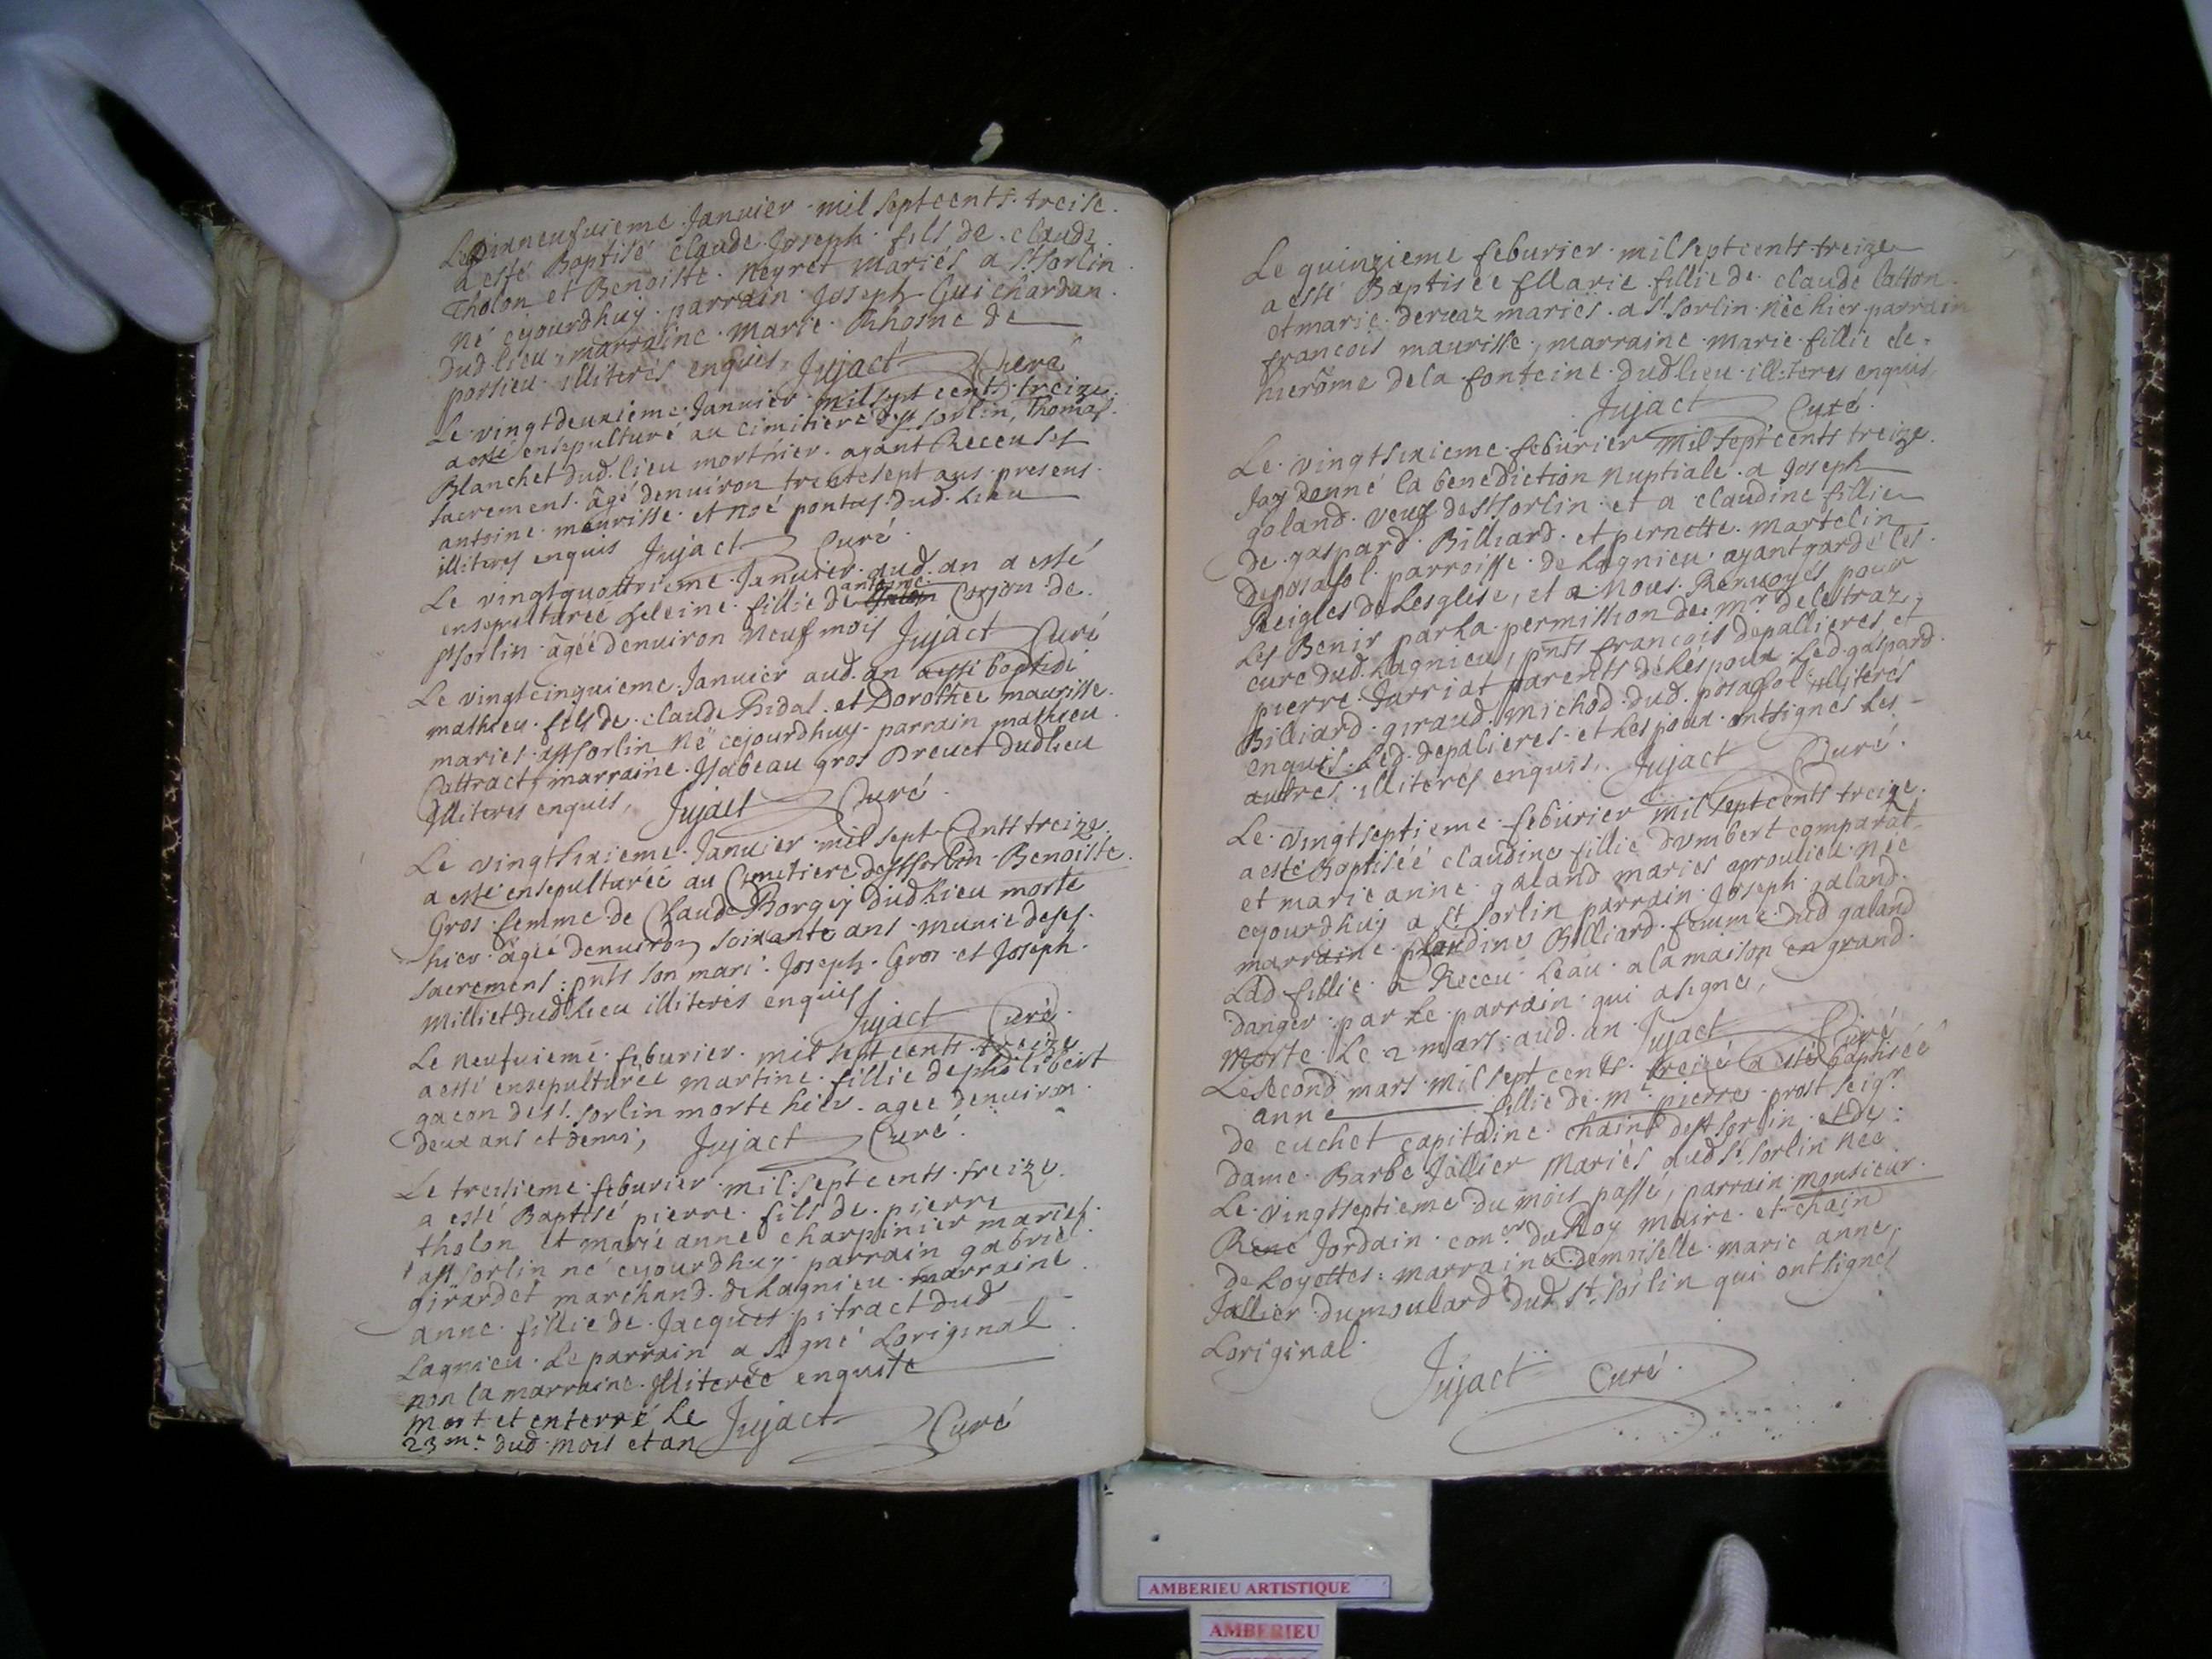 Le dixneufuieme Januier mil septcents treise
a esté Baptisé claude Joseph fils de claude
Tholon et Benoiste Neyret Mariés a St Sorlin
Né cejourdhuy parrain Joseph Guichardan
dud. lieu, marraine Marie Rhosne de
porsieu illiterés enquis, Jujact Curé
Le vingtdeuxieme Januier mil sept cents treize
a esté ensepulturé au cimitiere de St Sorlin, Thomas
Blanchet dud. lieu mort hier ayant Receu ses
sacremens âgé denuiron trentesept ans presens
antoine maurisse et Noé pontus dud. lieu
illiteres enquis Jujact Curé
Le vingtquatrieme Januier aud. an a esté
antoine
ensepulturée heleine fillie de Corjon de
St Sorlin âgéé denuiron neuf mois Jujact Curé
Le vingtcinquieme Januier aud. an a esté baptisé
mathieu fils de claude Bidal et Dorothée maurisse
mariés a St Sorlin Né cejourdhuy parrain mathieu
Cattract, marraine Isabeau gros Dreuet dudlieu
Illiteres enquis, Jujact Curé
Le vingtsixieme Januier mil sept Cents treize
a esté ensepulturée au Cimetiere de St Sorlin Benoiste
Gros femme de Claude Borgey dud lieu morte
hier âgée denuiron soixante ans munie de ses
sacremens: pnts son mari Joseph Gros et Joseph
Milliet dud lieu illiterés enquis
Jujact Curé
Le neufuieme feburier mil sept cents treize
a esté ensepulturée martine fillie de philibert
gacon de St. Sorlin morte hier agee denuiron
deux ans et demi, Jujact Curé
Le treisieme feburier mil septcents treize
a esté Baptisé pierre fils de pierre
tholon et marie anne charpinier mariés
a St Sorlin né cejourdhuy parrain gabriel
girardet marchand de Lagnieu marraine
anne fillie de Jacques pitract dud
Lagnieu Le parrain a signé Loriginal
non la marraine Illiterée enquise
mort et enterré Le Jujact Curé
23me dud mois et an
Le quinzieme feburier mil septcents treize
a esté Baptisée Marie fillie de claude latton
et marie dereaz mariés a St Sorlin Née hier parrain
francois maurisse, marraine marie fillie de
hierôme dela fonteine dudlieu illiteres enquis
Jujact Curé
Le vingtsixieme feburier mil septcents treize
Jay donné la benediction Nuptiale a Joseph
goland veuf de St Sorlin et a claudine fillie
de gaspard Billiard et pernette martelin
de posafol parroisse de Lagnieu ayant gardé les
Reigles de Lesglise, et a Nous Renuoyés pour
Les Benir par La permission de mr delestraz,
curé dud. Lagnieu, pnts francois depallieres et
pierre Jarriat parents de Lespoux Led. gaspard
Billiard giraud Michod dud. posafol illiterés
enquis Led. depalieres et Lespoux ont signés Les
autres illiterés enquis, Jujact Curé
Le vingtseptieme feburier mil septcents treize
a esté Baptiséé claudine fillie dumbert comparat
et marie anne galand mariés aproulieu née
cejourdhuy a St Sorlin parrain Joseph galand
marraine claudine Billiard femme dud galand
Lad fillie a Receu Leau a la maison en grand
danger par Le parrain qui a signé,
Morte Le 2 mars aud. an Jujact Curé
Le second mars mil sept cents treize a esté baptiséé
anne fillie de mr pierre prost seigr
de cuchet capitaine chain de St Sorlin et de
dame Barbe Jallier Mariés aud St Sorlin Née
Le vingtseptieme du mois passé, parrain monsieur
René Jordain coner du Roy maire et chain
de Loyettes: marraine demoiselle marie anne
Jallier dumoulard dud St. Sorlin qui ont signés
Loriginal
Jujact Curé
AMBERIEU ARTISTIQUE
AMBERIEU